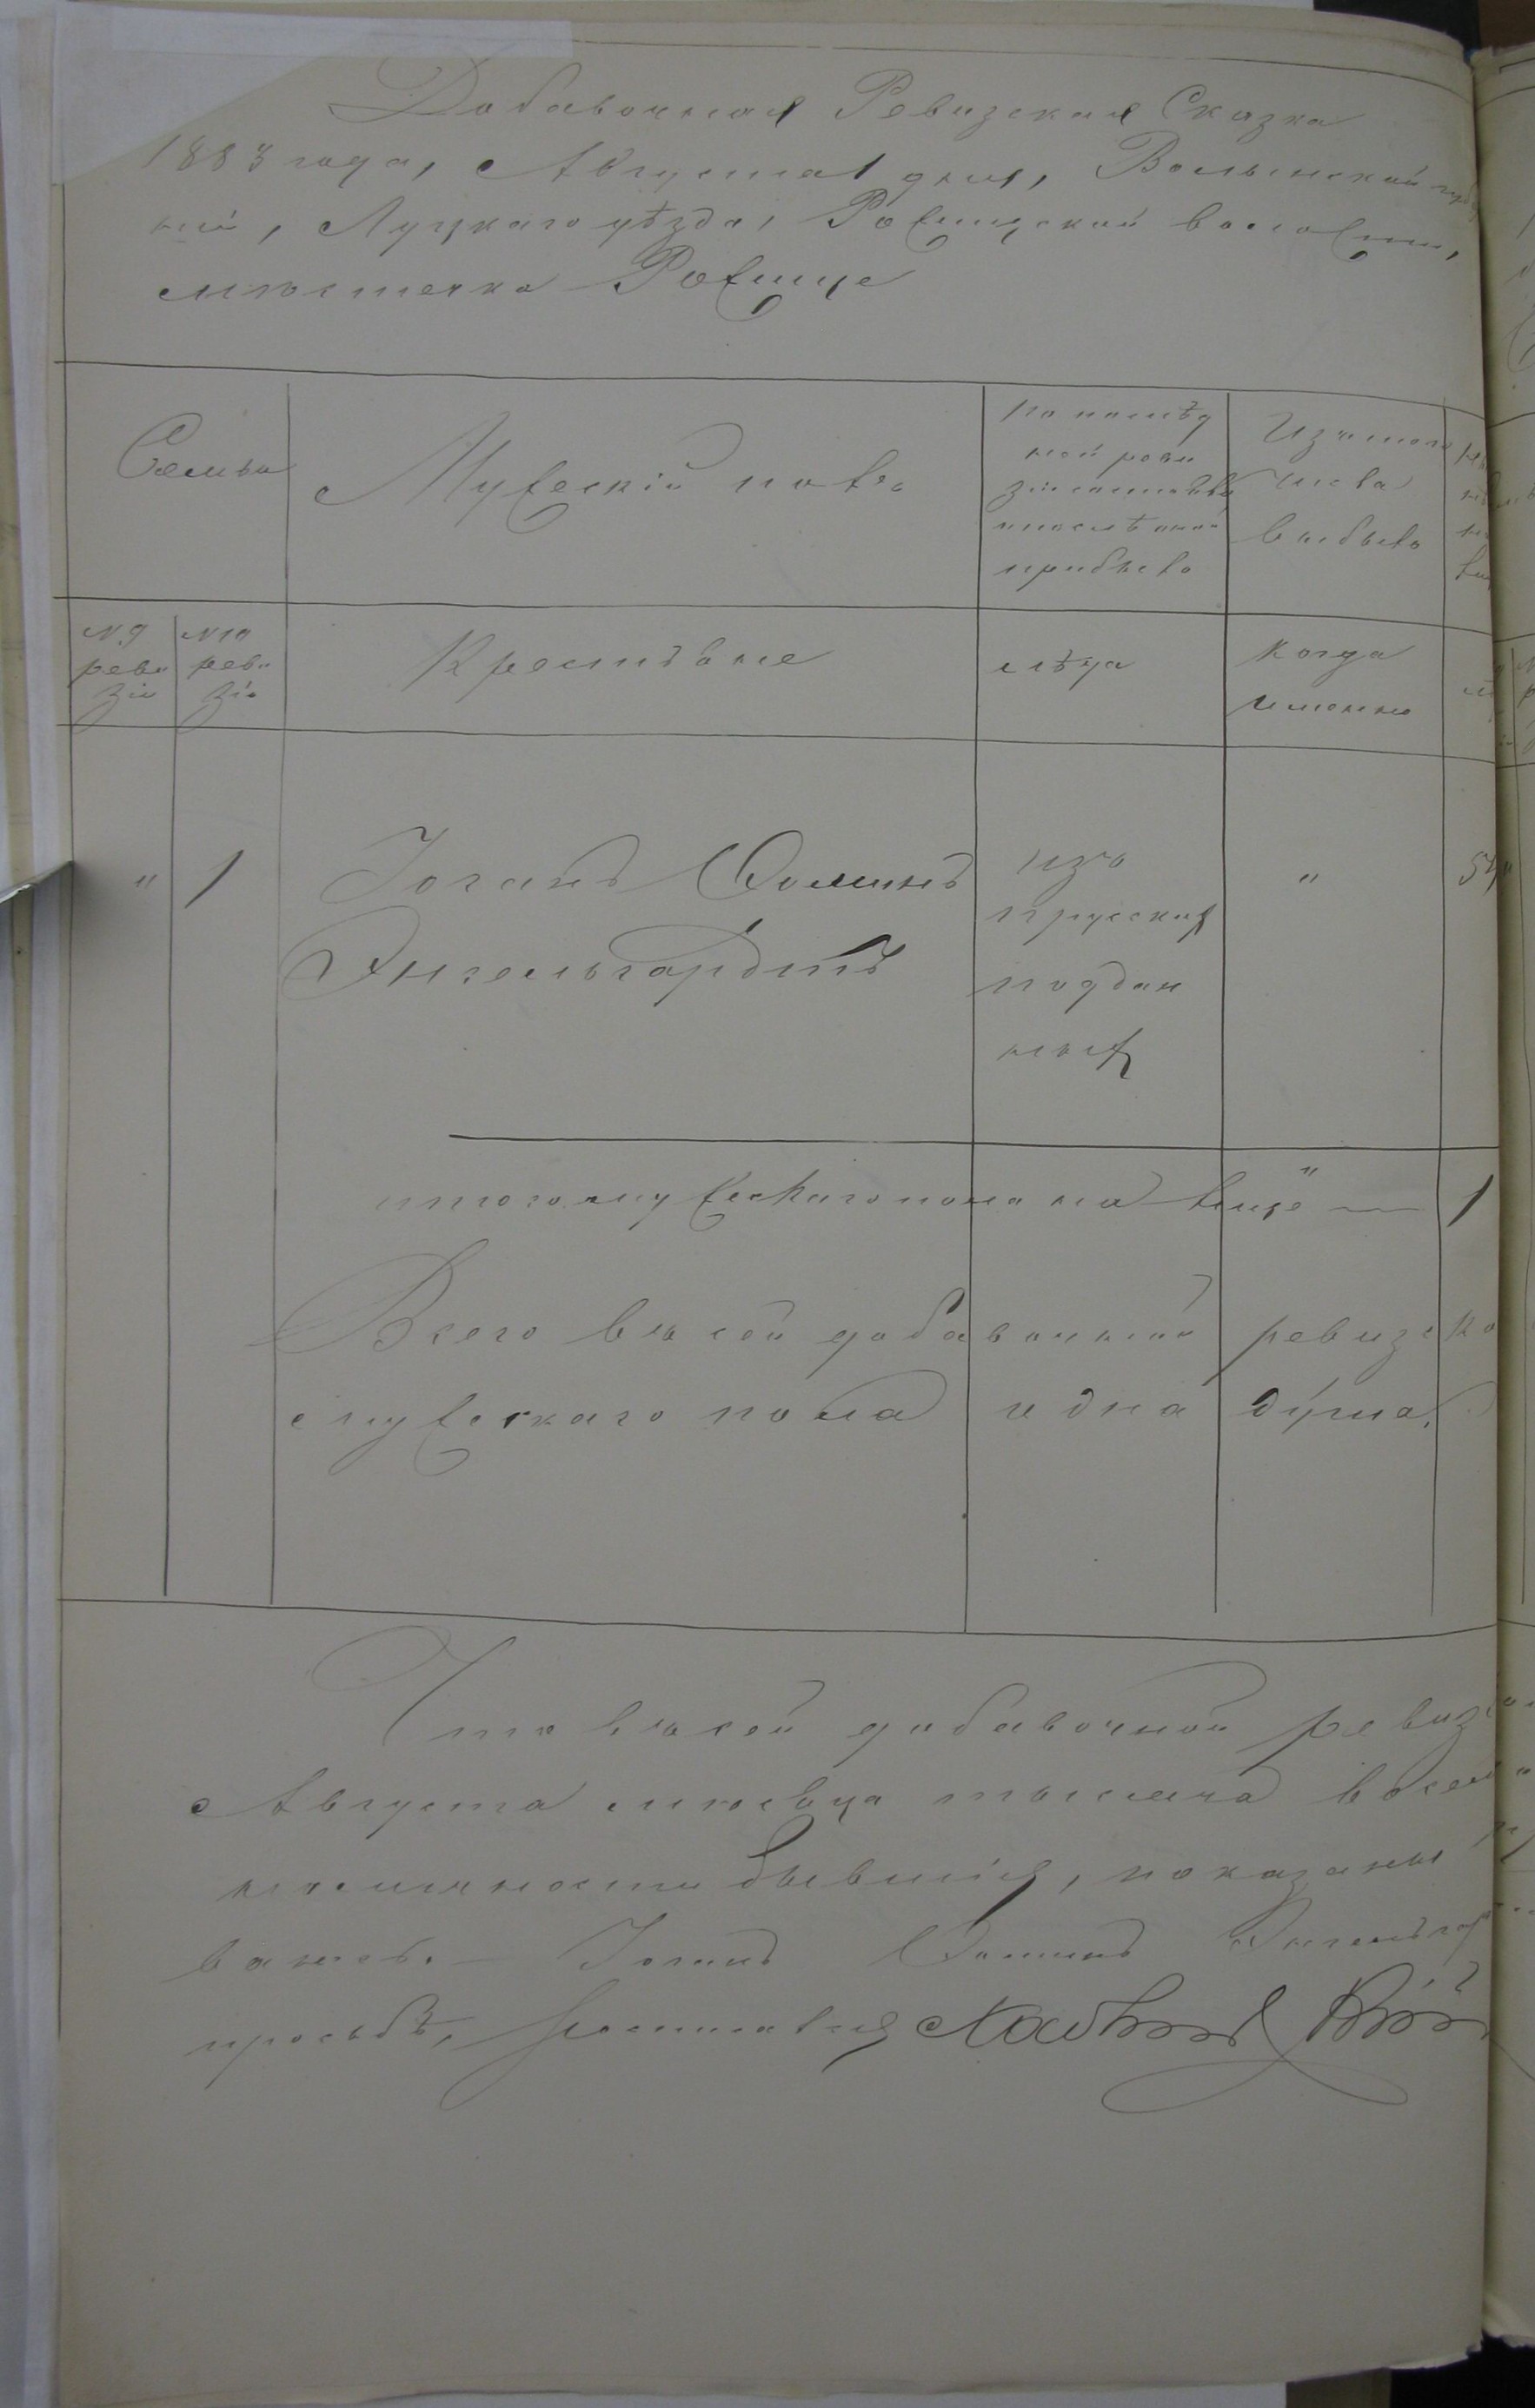 Добавочная Ревизская Сказка
1883 года, Августа 1 дня, Волынской губер
ніи, Луцкаго уѣзда, Рожищской волости,
мѣстечка Рожище
Семьи
Мужескій полъ
По послѣд
ней реви
зіи состояло
и послѣ оной
прибыло
Изъ того
числа
выбыло
№ 9
реви
зіи
№ 10
реви
зіи
Крестьяне
лѣта
Когда
именно
" 1 Іоганъ Фоминъ
Энгельгардтъ
изъ
прусскихъ
поддан
ныхъ
"
54
итого мужескаго пола на лице — 1
Всего въ сей добавочной ревизско
мужескаго пола одна душа.
Что въ сей добавочной ревизс
Августа мѣсяца тысяча восем
наличности бывшія, показаны
ванъ. — Іоганъ Фоминъ Энгельгар
просьбѣ,